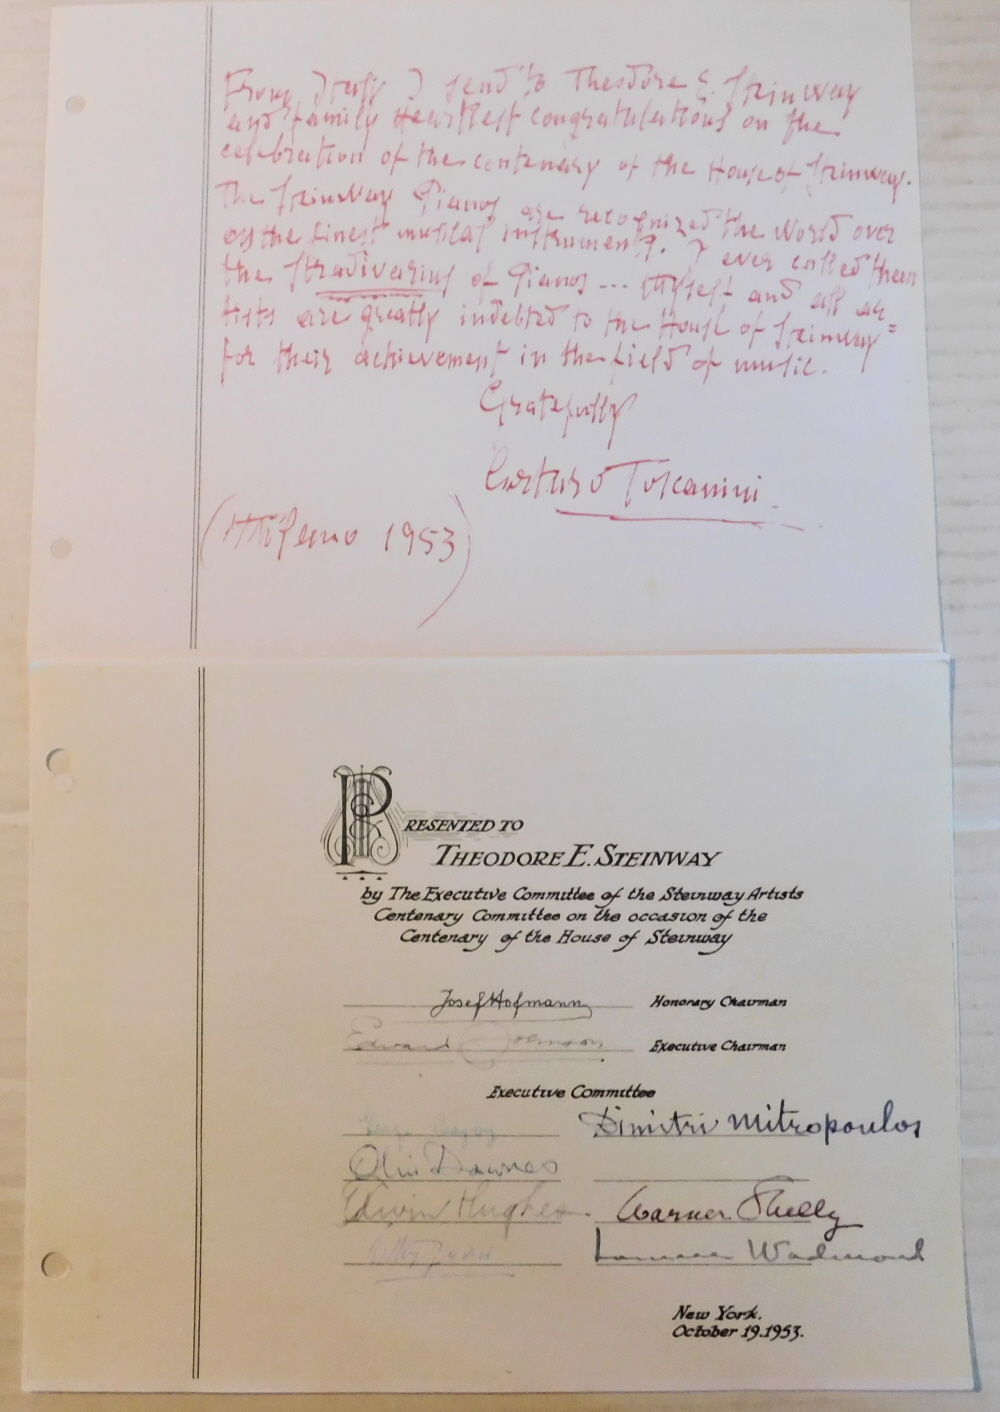 From Italy I send to Theodore E. Steinway
and family Heartfelt congratulations on the
celebration of the centenary of the House of Steinway.
The Steinway Pianos are recognized the world over
as the finest musical instruments. I ever called them
the Stradivarius of Pianos --- Myself and all ar=
tists are greatly indebted to the House of Steinway
for their achievement in the field of music.
Gratefully
Arturo Toscanini
1953)
PRESENTED TO
THEODORE E. STEINWAY
by The Executive Committee of the Steinway Artists
Centenary Committee on the occasion of the
Centenary of the House of Steinway
Josef Hofmann Honorary Chairman
Edward Johnson Executive Chairman
Executive Committee
Dimitri Mitropoulos
Olin Downes
Edwin Hughes. Warner Shelly
Wadmond
New York.
October 19.1953.